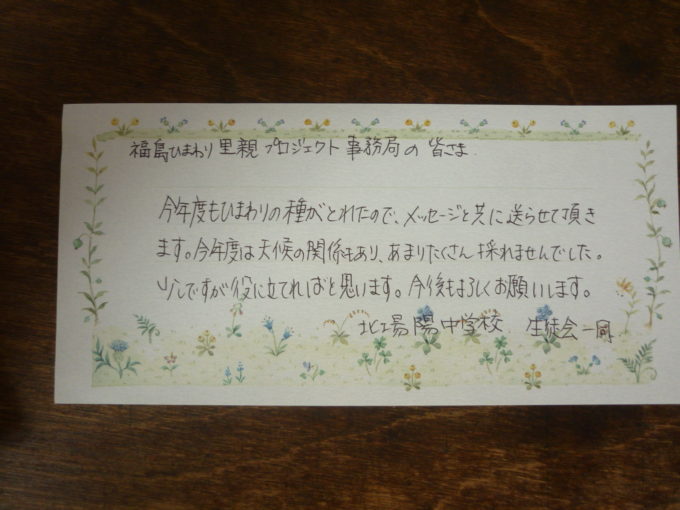 福島ひまわり里親プロジェクト事務局の皆さま
今年度もひまわりの種がとれたので、メッセージと共に送らせて頂き
ます。今年度は天候の関係もあり、あまりたくさん採れませんでした。
少しですが役に立てればと思います。今後もよろしくお願いします。
北上陽中学校 生徒会一同